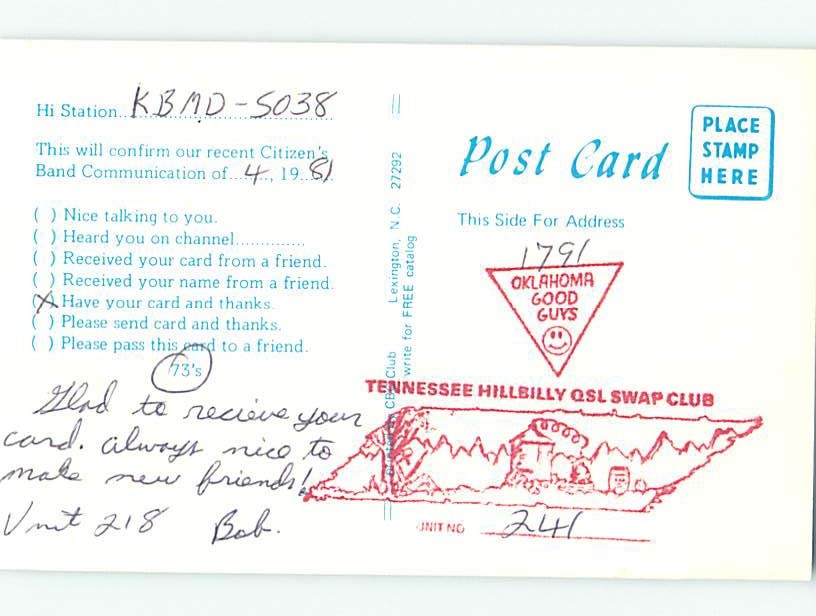 Hi Station..KBMD-5038
This will confirm our recent Citizen's
Band Communication of...4., 19.81
( ) Nice talking to you.
( ) Heard you on channel...............
( ) Received your card from a friend.
( ) Received your name from a friend.
(X) Have your card and thanks.
( ) Please send card and thanks.
( ) Please pass this card to a friend.
73's
Glad to recieve your
card. always nice to
make new friends!
Unit 218 Bob.
CB Club Lexington, N.C. 27292
write for FREE catalog
Post Card
PLACE
STAMP
HERE
This Side For Address
1791
OKLAHOMA
GOOD
GUYS
TENNESSEE HILLBILLY QSL SWAP CLUB
UNIT NO 241